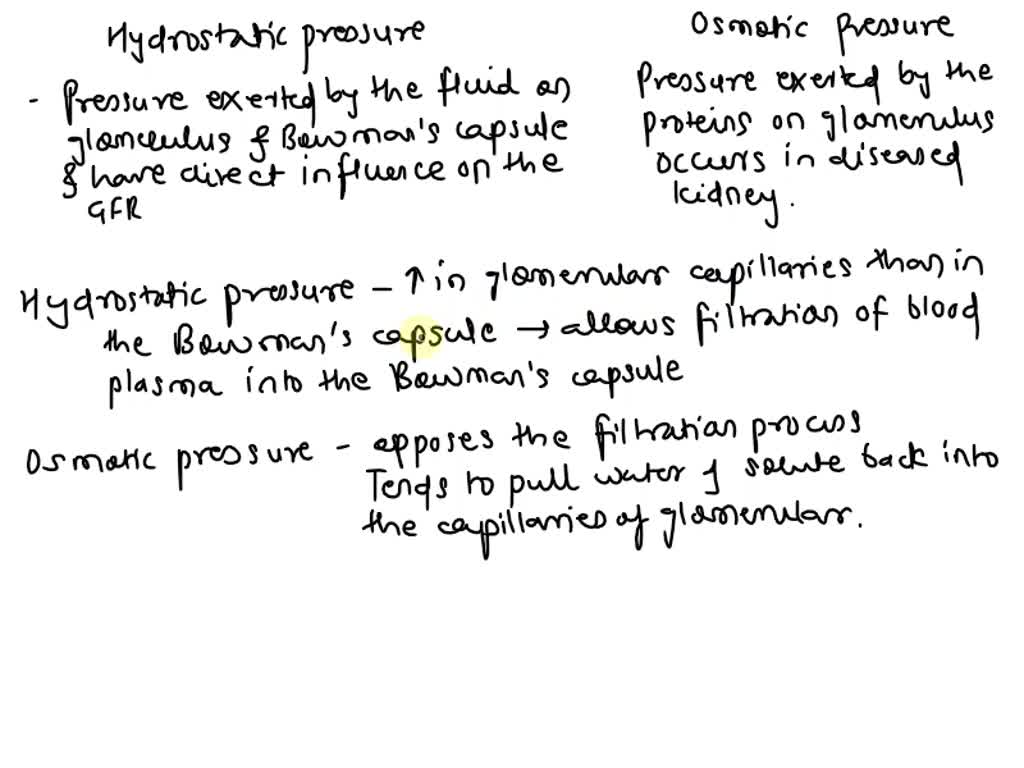 Hydrostatic pressure
- Pressure exerted by the fluid on
glomeulus & Bowman's capsule
& have direct influence on the
GFR
Osmotic pressure
Pressure exerted by the
proteins on glomenulus
occurs in diseased
kidney.
Hydrostatic pressure - ↑ in glomenular capillaries than in
the Bowman's capsule → allows filtration of blood
plasma into the Bowman's capsule
Osmotic pressure - opposes the filtration process
Tends to pull water & solute back into
the capillaries of glomenular.